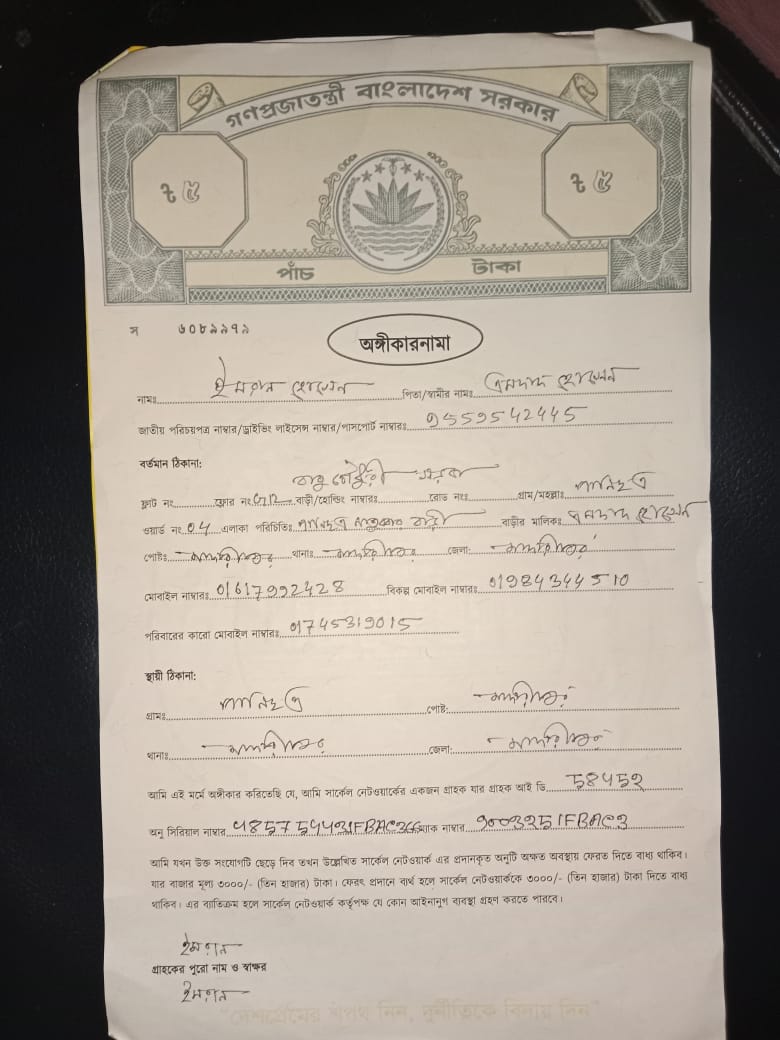 গণপ্রজাতন্ত্রী বাংলাদেশ সরকার
৳ ৫ ৳ ৫
পাঁচ টাকা
স ৬০৮৯৯৭৯
অঙ্গীকারনামা
নামঃ ইমরান হোসেন পিতা/স্বামীর নামঃ এমদাদ হোসেন
জাতীয় পরিচয়পত্র নাম্বার/ড্রাইভিং লাইসেন্স নাম্বার/পাসপোর্ট নাম্বারঃ 9559542445
বর্তমান ঠিকানা:
ফ্লাট নং ফ্লোর নং বাড়ী/হোল্ডিং নাম্বারঃ রোড নংঃ গ্রাম/মহল্লাঃ
ওয়ার্ড নং 04 এলাকা পরিচিতিঃ বাড়ী বাড়ীর মালিকঃ এমদাদ হোসেন
পোষ্টঃ মাদারীপুর থানাঃ মাদারীপুর জেলা: মাদারীপুর
মোবাইল নাম্বারঃ 01617992428 বিকল্প মোবাইল নাম্বারঃ 01984344510
পরিবারের কারো মোবাইল নাম্বারঃ 01745319015
স্থায়ী ঠিকানা:
গ্রামঃ পোষ্ট: মাদারীপুর
থানাঃ মাদারীপুর জেলা: মাদারীপুর
আমি এই মর্মে অঙ্গীকার করিতেছি যে, আমি সার্কেল নেটওয়ার্কের একজন গ্রাহক যার গ্রাহক আই ডি 58452
অনু সিরিয়াল নাম্বার ম্যাক নাম্বার
আমি যখন উক্ত সংযোগটি ছেড়ে দিব তখন উল্লেখিত সার্কেল নেটওয়ার্ক এর প্রদানকৃত অনুটি অক্ষত অবস্থায় ফেরত দিতে বাধ্য থাকিব।
যার বাজার মূল্য ৩০০০/- (তিন হাজার) টাকা। ফেরৎ প্রদানে ব্যর্থ হলে সার্কেল নেটওয়ার্ককে ৩০০০/- (তিন হাজার) টাকা দিতে বাধ্য
থাকিব। এর ব্যতিক্রম হলে সার্কেল নেটওয়ার্ক কর্তৃপক্ষ যে কোন আইনানুগ ব্যবস্থা গ্রহণ করতে পারবে।
ইমরান
গ্রাহকের পুরো নাম ও স্বাক্ষর
ইমরান
"দেশপ্রেমের শপথ নিন, দুর্নীতিকে বিদায় দিন"